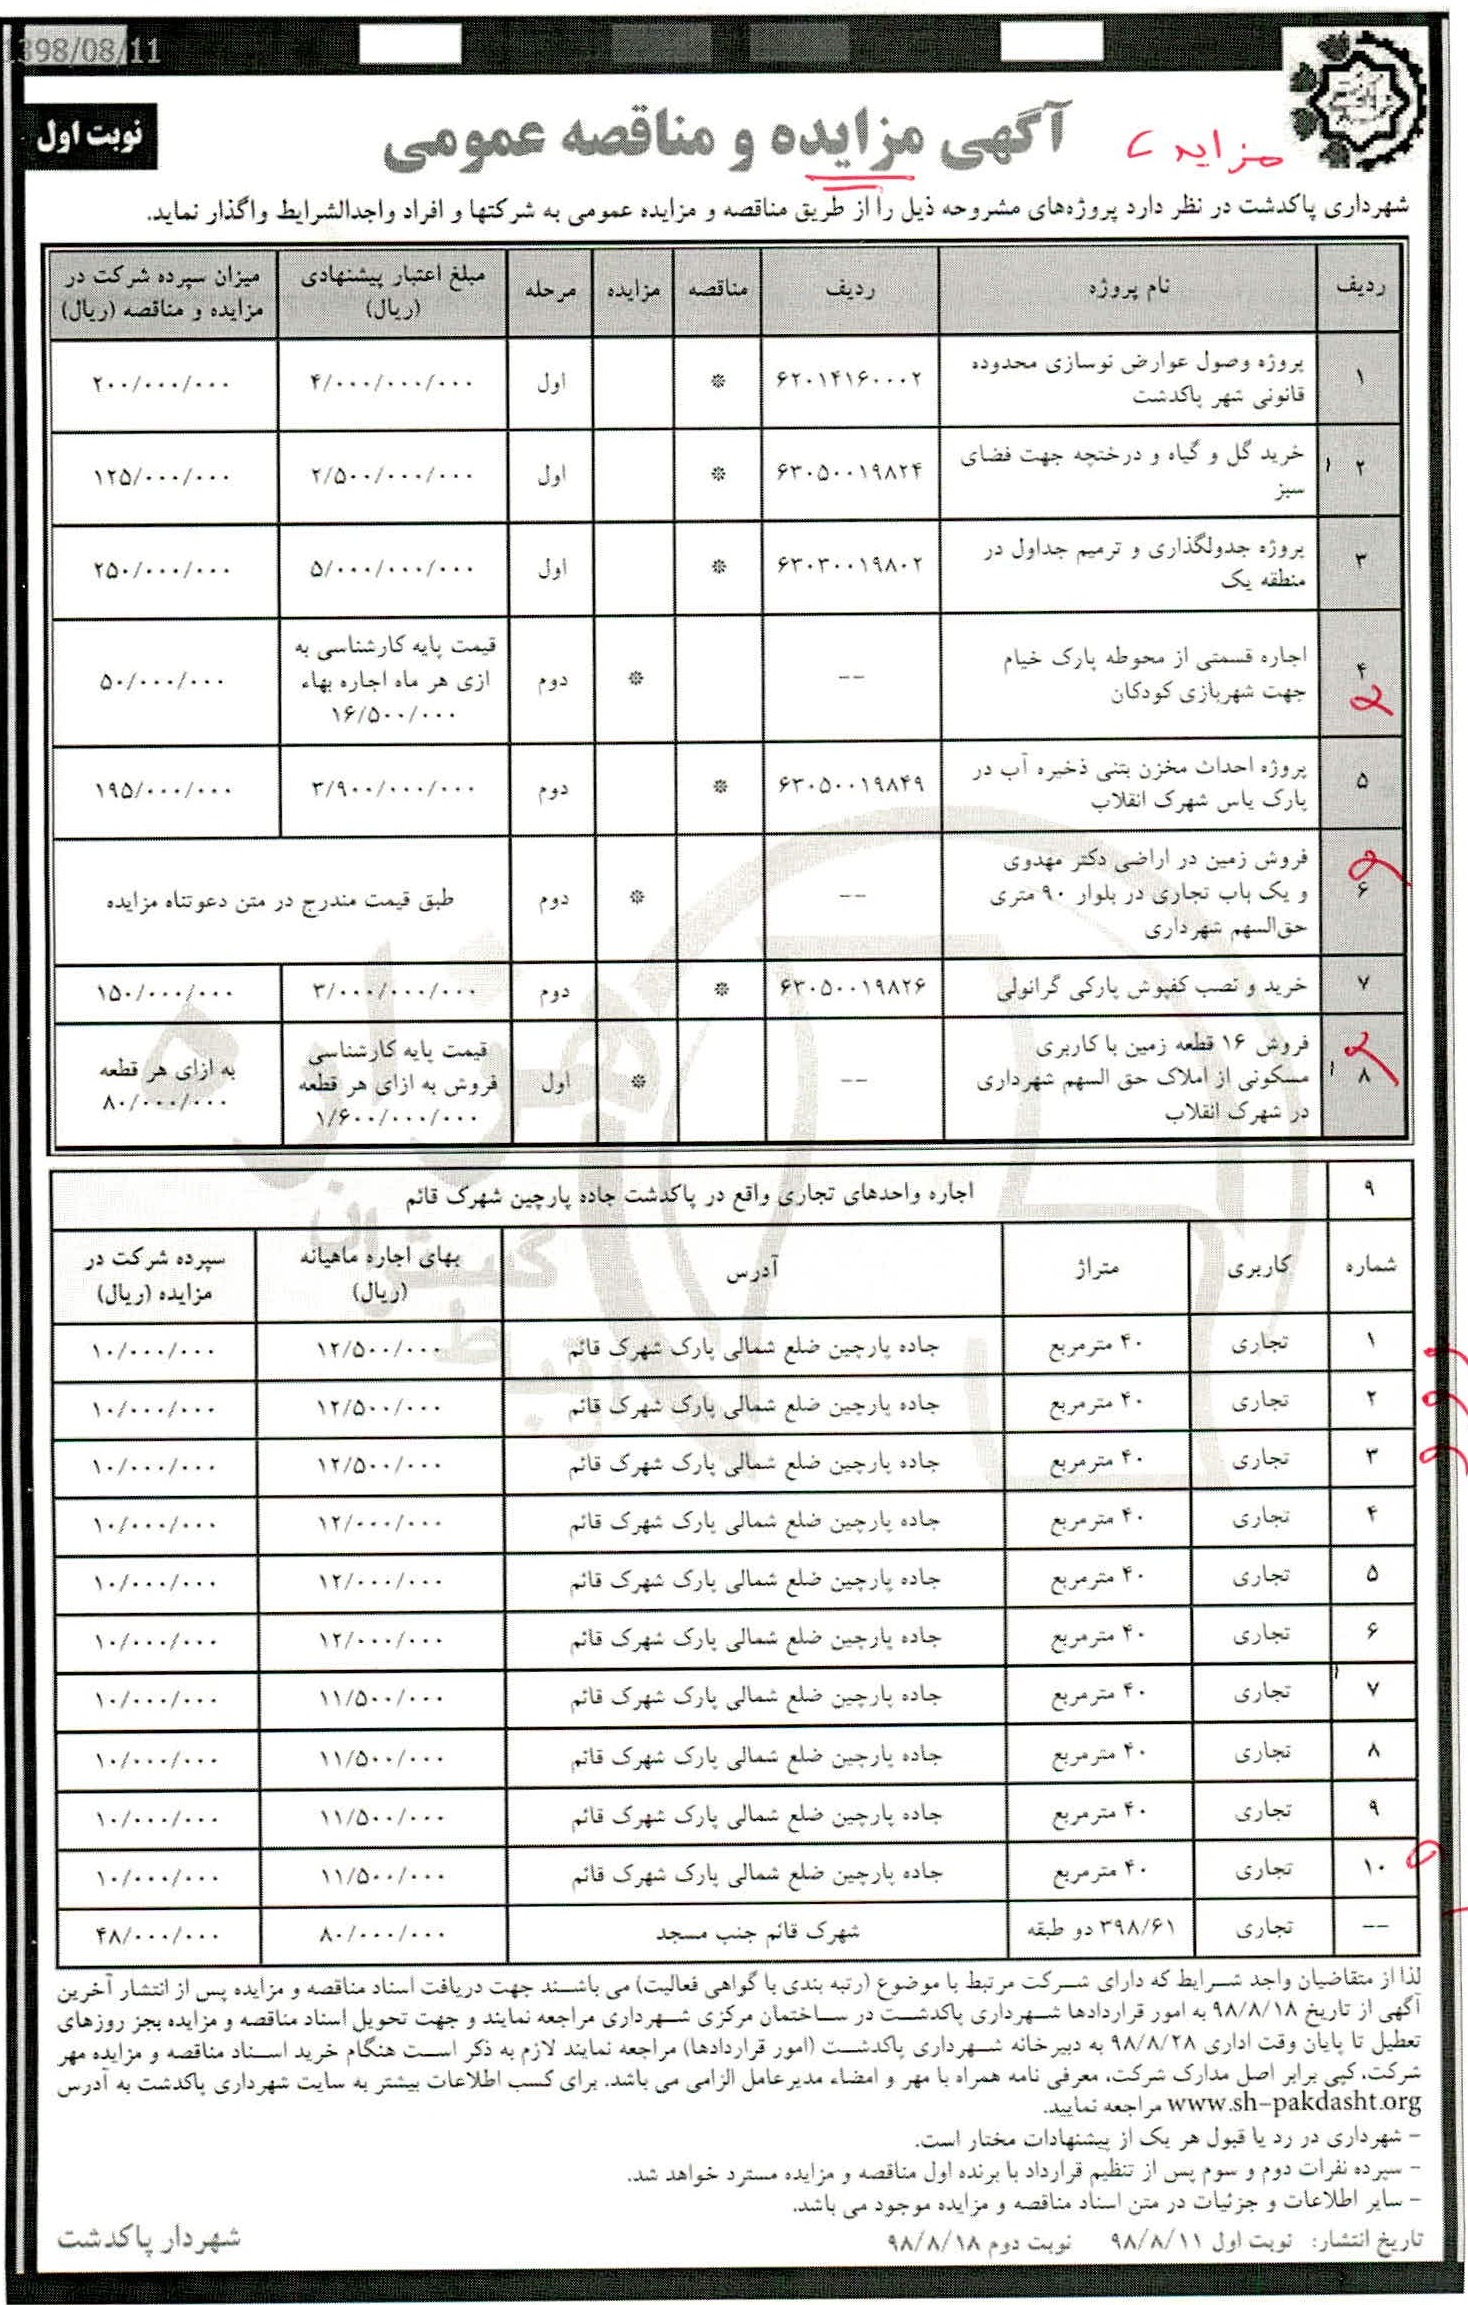 1398/08/11
نوبت اول
آگهی مزایده و مناقصه عمومی
مزایده
شهرداری پاکدشت در نظر دارد پروژه‌های مشروحه ذیل را از طریق مناقصه و مزایده عمومی به شرکتها و افراد واجدالشرایط واگذار نماید.
ردیف نام پروژه ردیف مناقصه مزایده مرحله مبلغ اعتبار پیشنهادی (ریال) میزان سپرده شرکت در مزایده و مناقصه (ریال)
۱ پروژه وصول عوارض نوسازی محدوده قانونی شهر پاکدشت ۶۲۰۱۴۱۶۰۰۰۲ * اول ۴/۰۰۰/۰۰۰/۰۰۰ ۲۰۰/۰۰۰/۰۰۰
۲ خرید گل و گیاه و درختچه جهت فضای سبز ۶۳۰۵۰۰۱۹۸۲۴ * اول ۲/۵۰۰/۰۰۰/۰۰۰ ۱۲۵/۰۰۰/۰۰۰
۳ پروژه جدولگذاری و ترمیم جداول در منطقه یک ۶۳۰۳۰۰۱۹۸۰۲ * اول ۵/۰۰۰/۰۰۰/۰۰۰ ۲۵۰/۰۰۰/۰۰۰
۴ اجاره قسمتی از محوطه پارک خیام جهت شهربازی کودکان -- * دوم قیمت پایه کارشناسی به ازی هر ماه اجاره بهاء ۱۶/۵۰۰/۰۰۰ ۵۰/۰۰۰/۰۰۰
۵ پروژه احداث مخزن بتنی ذخیره آب در پارک یاس شهرک انقلاب ۶۳۰۵۰۰۱۹۸۴۹ * دوم ۳/۹۰۰/۰۰۰/۰۰۰ ۱۹۵/۰۰۰/۰۰۰
۶ فروش زمین در اراضی دکتر مهدوی و یک باب تجاری در بلوار ۹۰ متری حق‌السهم شهرداری -- * دوم طبق قیمت مندرج در متن دعوتناه مزایده
۷ خرید و نصب کفپوش پارکی گرانولی ۶۳۰۵۰۰۱۹۸۲۶ * دوم ۳/۰۰۰/۰۰۰/۰۰۰ ۱۵۰/۰۰۰/۰۰۰
۸ فروش ۱۶ قطعه زمین با کاربری مسکونی از املاک حق السهم شهرداری در شهرک انقلاب -- * اول قیمت پایه کارشناسی فروش به ازای هر قطعه ۱/۶۰۰/۰۰۰/۰۰۰ به ازای هر قطعه ۸۰/۰۰۰/۰۰۰
۹ اجاره واحدهای تجاری واقع در پاکدشت جاده پارچین شهرک قائم
شماره کاربری متراژ آدرس بهای اجاره ماهیانه (ریال) سپرده شرکت در مزایده (ریال)
۱ تجاری ۴۰ مترمربع جاده پارچین ضلع شمالی پارک شهرک قائم ۱۲/۵۰۰/۰۰۰ ۱۰/۰۰۰/۰۰۰
۲ تجاری ۴۰ مترمربع جاده پارچین ضلع شمالی پارک شهرک قائم ۱۲/۵۰۰/۰۰۰ ۱۰/۰۰۰/۰۰۰
۳ تجاری ۴۰ مترمربع جاده پارچین ضلع شمالی پارک شهرک قائم ۱۲/۵۰۰/۰۰۰ ۱۰/۰۰۰/۰۰۰
۴ تجاری ۴۰ مترمربع جاده پارچین ضلع شمالی پارک شهرک قائم ۱۲/۰۰۰/۰۰۰ ۱۰/۰۰۰/۰۰۰
۵ تجاری ۴۰ مترمربع جاده پارچین ضلع شمالی پارک شهرک قائم ۱۲/۰۰۰/۰۰۰ ۱۰/۰۰۰/۰۰۰
۶ تجاری ۴۰ مترمربع جاده پارچین ضلع شمالی پارک شهرک قائم ۱۲/۰۰۰/۰۰۰ ۱۰/۰۰۰/۰۰۰
۷ تجاری ۴۰ مترمربع جاده پارچین ضلع شمالی پارک شهرک قائم ۱۱/۵۰۰/۰۰۰ ۱۰/۰۰۰/۰۰۰
۸ تجاری ۴۰ مترمربع جاده پارچین ضلع شمالی پارک شهرک قائم ۱۱/۵۰۰/۰۰۰ ۱۰/۰۰۰/۰۰۰
۹ تجاری ۴۰ مترمربع جاده پارچین ضلع شمالی پارک شهرک قائم ۱۱/۵۰۰/۰۰۰ ۱۰/۰۰۰/۰۰۰
۱۰ تجاری ۴۰ مترمربع جاده پارچین ضلع شمالی پارک شهرک قائم ۱۱/۵۰۰/۰۰۰ ۱۰/۰۰۰/۰۰۰
-- تجاری ۳۹۸/۶۱ دو طبقه شهرک قائم جنب مسجد ۸۰/۰۰۰/۰۰۰ ۴۸/۰۰۰/۰۰۰
لذا از متقاضیان واجد شرایط که دارای شرکت مرتبط با موضوع (رتبه بندی با گواهی فعالیت) می باشند جهت دریافت اسناد مناقصه و مزایده پس از انتشار آخرین
آگهی از تاریخ ۹۸/۸/۱۸ به امور قراردادها شهرداری پاکدشت در ساختمان مرکزی شهرداری مراجعه نمایند و جهت تحویل اسناد مناقصه و مزایده بجز روزهای
تعطیل تا پایان وقت اداری ۹۸/۸/۲۸ به دبیرخانه شهرداری پاکدشت (امور قراردادها) مراجعه نمایند لازم به ذکر است هنگام خرید اسناد مناقصه و مزایده مهر
شرکت، کپی برابر اصل مدارک شرکت، معرفی نامه همراه با مهر و امضاء مدیرعامل الزامی می باشد. برای کسب اطلاعات بیشتر به سایت شهرداری پاکدشت به آدرس
www.sh-pakdasht.org مراجعه نمایید.
- شهرداری در رد یا قبول هر یک از پیشنهادات مختار است.
- سپرده نفرات دوم و سوم پس از تنظیم قرارداد با برنده اول مناقصه و مزایده مسترد خواهد شد.
- سایر اطلاعات و جزئیات در متن اسناد مناقصه و مزایده موجود می باشد.
تاریخ انتشار: نوبت اول ۹۸/۸/۱۱ نوبت دوم ۹۸/۸/۱۸
شهردار پاکدشت